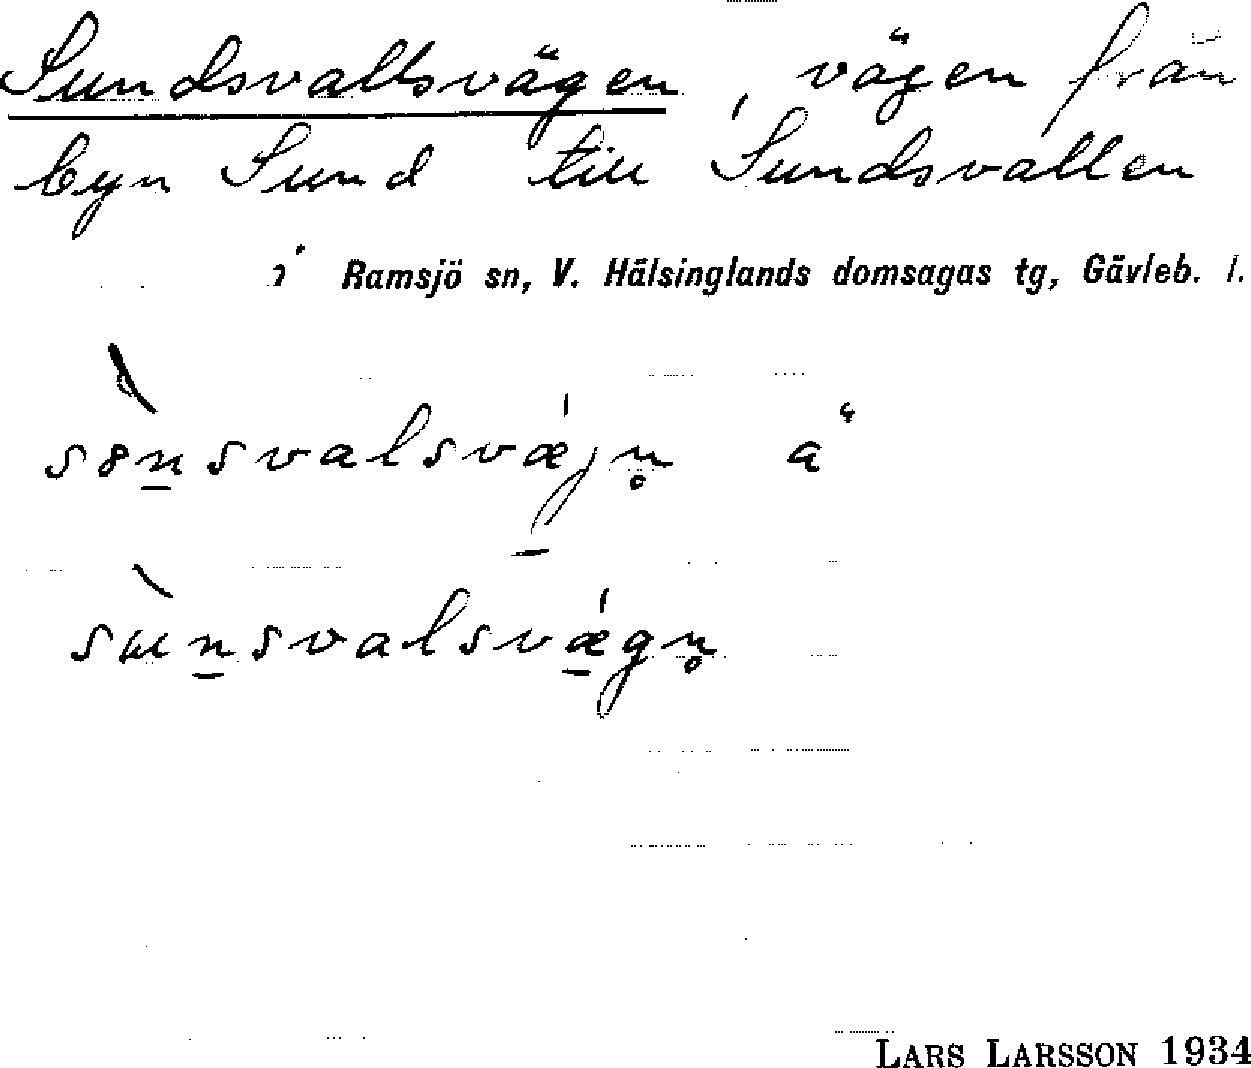 Sundsvallsvägen, vägen från
byn Sund till Sundsvallen
i Ramsjö sn, V. Hälsinglands domsagas tg, Gävleb. l.
LARS LARSSON 1934